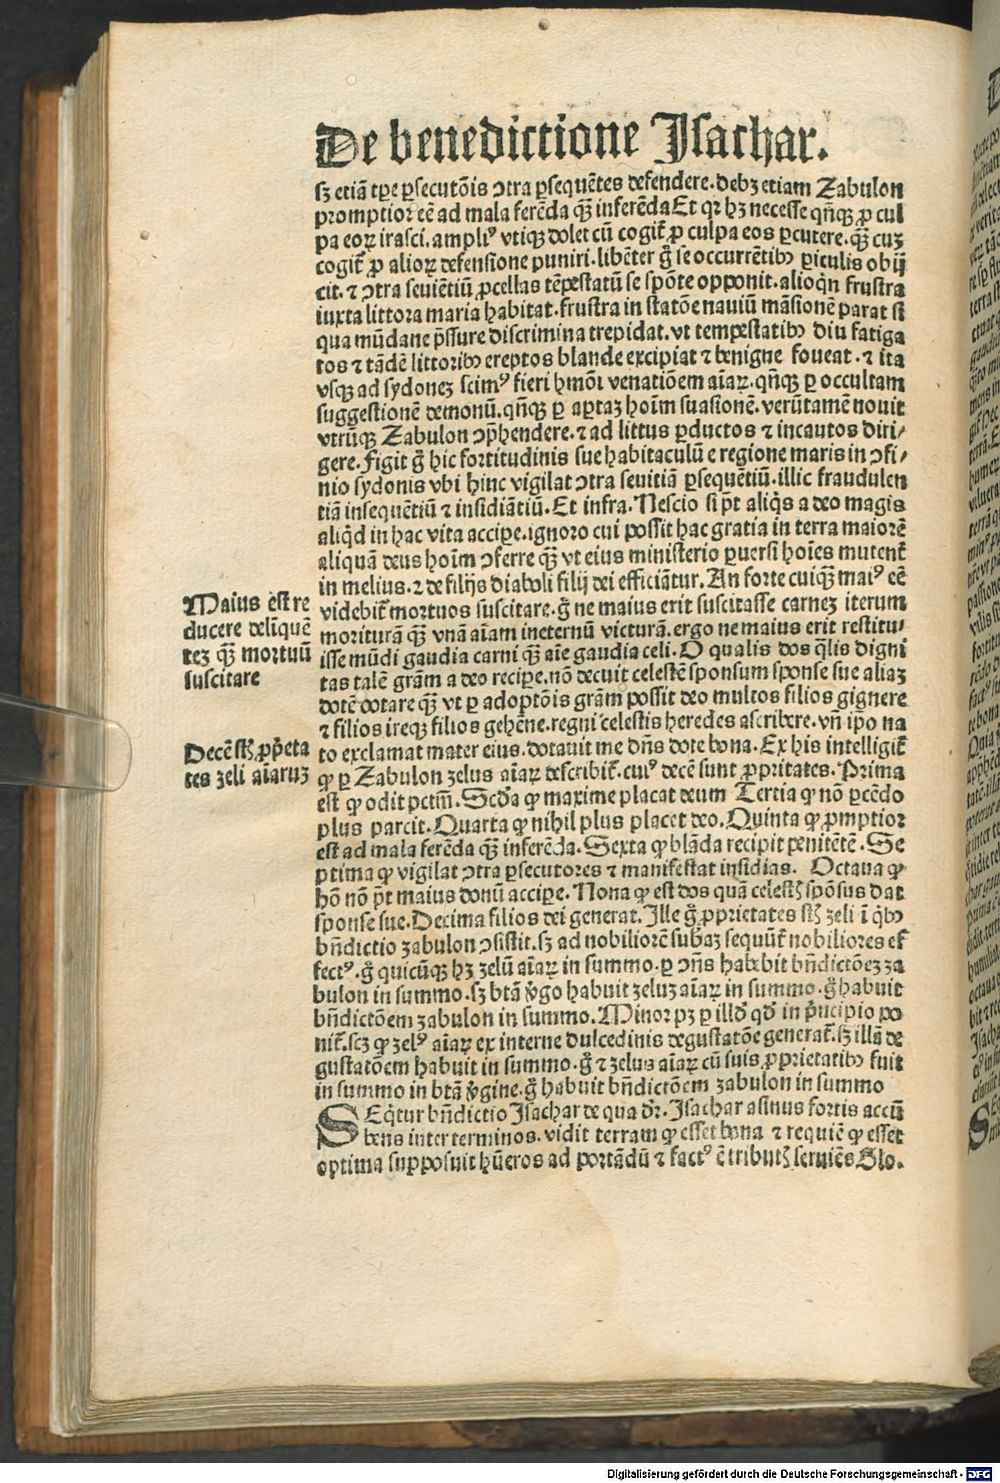 De benedictione Isachar.
sꝫ etiā tꝑe ꝑsecutōis ↄtra ꝑsequētes defendere. debꝫ etiam Zabulon
promptior eē ad mala ferēda qꝫ̄ inferēda Et qꝛ hꝫ necesse qn̄qꝫ ꝓ cul
pa eoꝝ irasci. ampliꝰ vtiqꝫ dolet cū cogit̄ ꝓ culpa eos ꝑcutere. qꝫ̄ cuꝫ
cogit̄ ꝓ alioꝝ defensione puniri. libēter gͦ se occurrētibꝰ ꝑiculis obij
cit. ⁊ ↄtra seuiētiū ꝓcellas tēpestatū se spōte opponit. alioqͥn frustra
iuxta littora maria habitat. frustra in statōe nauiū māsionē parat si
qua mūdane p̄ssure discrimina trepidat. vt tempestatibꝰ diu fatiga
tos ⁊ tādē littoribꝰ ereptos blande excipiat ⁊ benigne foueat. ⁊ ita
vsqꝫ ad sydoneꝫ scimꝰ fieri hmōi venatiōem aīaꝝ. qn̄qꝫ ꝑ occultam
suggestionē demonū. qn̄qꝫ ꝑ aꝑtaꝫ hoīm suasionē. verūtamē nouit
vtrūqꝫ Zabulon ↄp̄hendere. ⁊ ad littus ꝑductos ⁊ incautos diri⸗
gere. Figit gͦ hic fortitudinis sue habitaculū e regione maris in ↄfi⸗
nio sydonis vbi hinc vigilat ↄtra seuitiā ꝑsequētiū. illic fraudulen
tiā insequētiū ⁊ insidiātiū. Et infra. Nescio si pt̄ aliqͥs a deo magis
aliqͥd in hac vita accipe. ignoro cui possit hac gratia in terra maiorē
aliquā deus hoīm ↄferre qꝫ̄ vt eius ministerio ꝑuersi hoīes mutent̄
in melius. ⁊ de filijs diaboli filij dei efficiātur. An forte cuiqꝫ̄ maiꝰ eē
videbit̄ mortuos suscitare. gͦ ne maius erit suscitasse carneꝫ iterum
morituram qꝫ̄ vnā aīam ineternū victurā. ergo ne maius erit restitu⸗
isse mūdi gaudia carni qꝫ̄ aīe gaudia celi. O qualis dos qͣlis digni
tas talē grām a deo recipe. nō decuit celestē sponsum sponse sue aliaꝫ
dotē dotare qꝫ̄ vt ꝑ adoptōis grām possit deo multos filios gignere
⁊ filios ireqꝫ filios gehēne. regni celestis heredes ascribere. vn̄ ip̄o na
to exclamat mater eius. dotauit me dn̄s dote bona. Ex his intelligit̄
ꝙ ꝑ Zabulon zelus aīaꝝ describit̄. cuiꝰ decē sunt ꝓpritates. Prima
est ꝙ odit pctm̄. Scd̄a ꝙ maxime placat deum Tertia ꝙ nō ꝑcēdo
plus parcit. Quarta ꝙ nihil plus placet deo. Quinta ꝙ ꝓmptior
est ad mala ferēda qꝫ̄ inferēda. Sexta ꝙ blāda recipit penitētē. Se
ptima ꝙ vigilat ↄtra ꝑsecutores ⁊ manifestat insidias. Octaua ꝙ
hō nō pt̄ maius donū accipe. Nona ꝙ est dos quā celestꝭ spōsus dat
sponse sue. Decima filios dei generat. Ille gͦ ꝓprietates sꝭ zeli ī qͥbꝰ
bn̄dictio zabulon ↄsistit. sꝫ ad nobiliorē subaꝫ sequūt̄ nobiliores ef
fectꝰ. gͦ quicūqꝫ hꝫ zelū aīaꝝ in summo. ꝑ ↄn̄s habebit bn̄dictōeꝫ za
bulon in summo. sꝫ btā v̄go habuit zeluꝫ aīaꝝ in summo. gͦ habuit
bn̄dictōem zabulon in summo. Minor pꝫ ꝑ illd̄ qd̄ in pͥncipio po
nit̄. scꝫ ꝙ zelꝰ aīaꝝ ex interne dulcedinis degustatōe generat̄. sꝫ illā de
gustatōem habuit in summo. gͦ ⁊ zelus aīaꝝ cū suis ꝓprietatibꝰ fuit
in summo in btā v̄gine. gͦ habuit bn̄dictōem zabulon in summo
SEqͥtur bn̄dictio Isachar de qua dr̄. Isachar asinus fortis accū
bens inter terminos. vidit terram ꝙ esset bona ⁊ requiē ꝙ esset
optima supposuit hūeros ad portādū ⁊ factꝰ ē tributꝭ seruiēs Glo.
Maius est re
ducere delinquē
teꝫ qꝫ̄ mortuū
suscitare
Decē sꝭ ꝓp̄eta
tes zeli aīaruꝫ
Digitalisierung gefördert durch die Deutsche Forschungsgemeinschaft - DFG